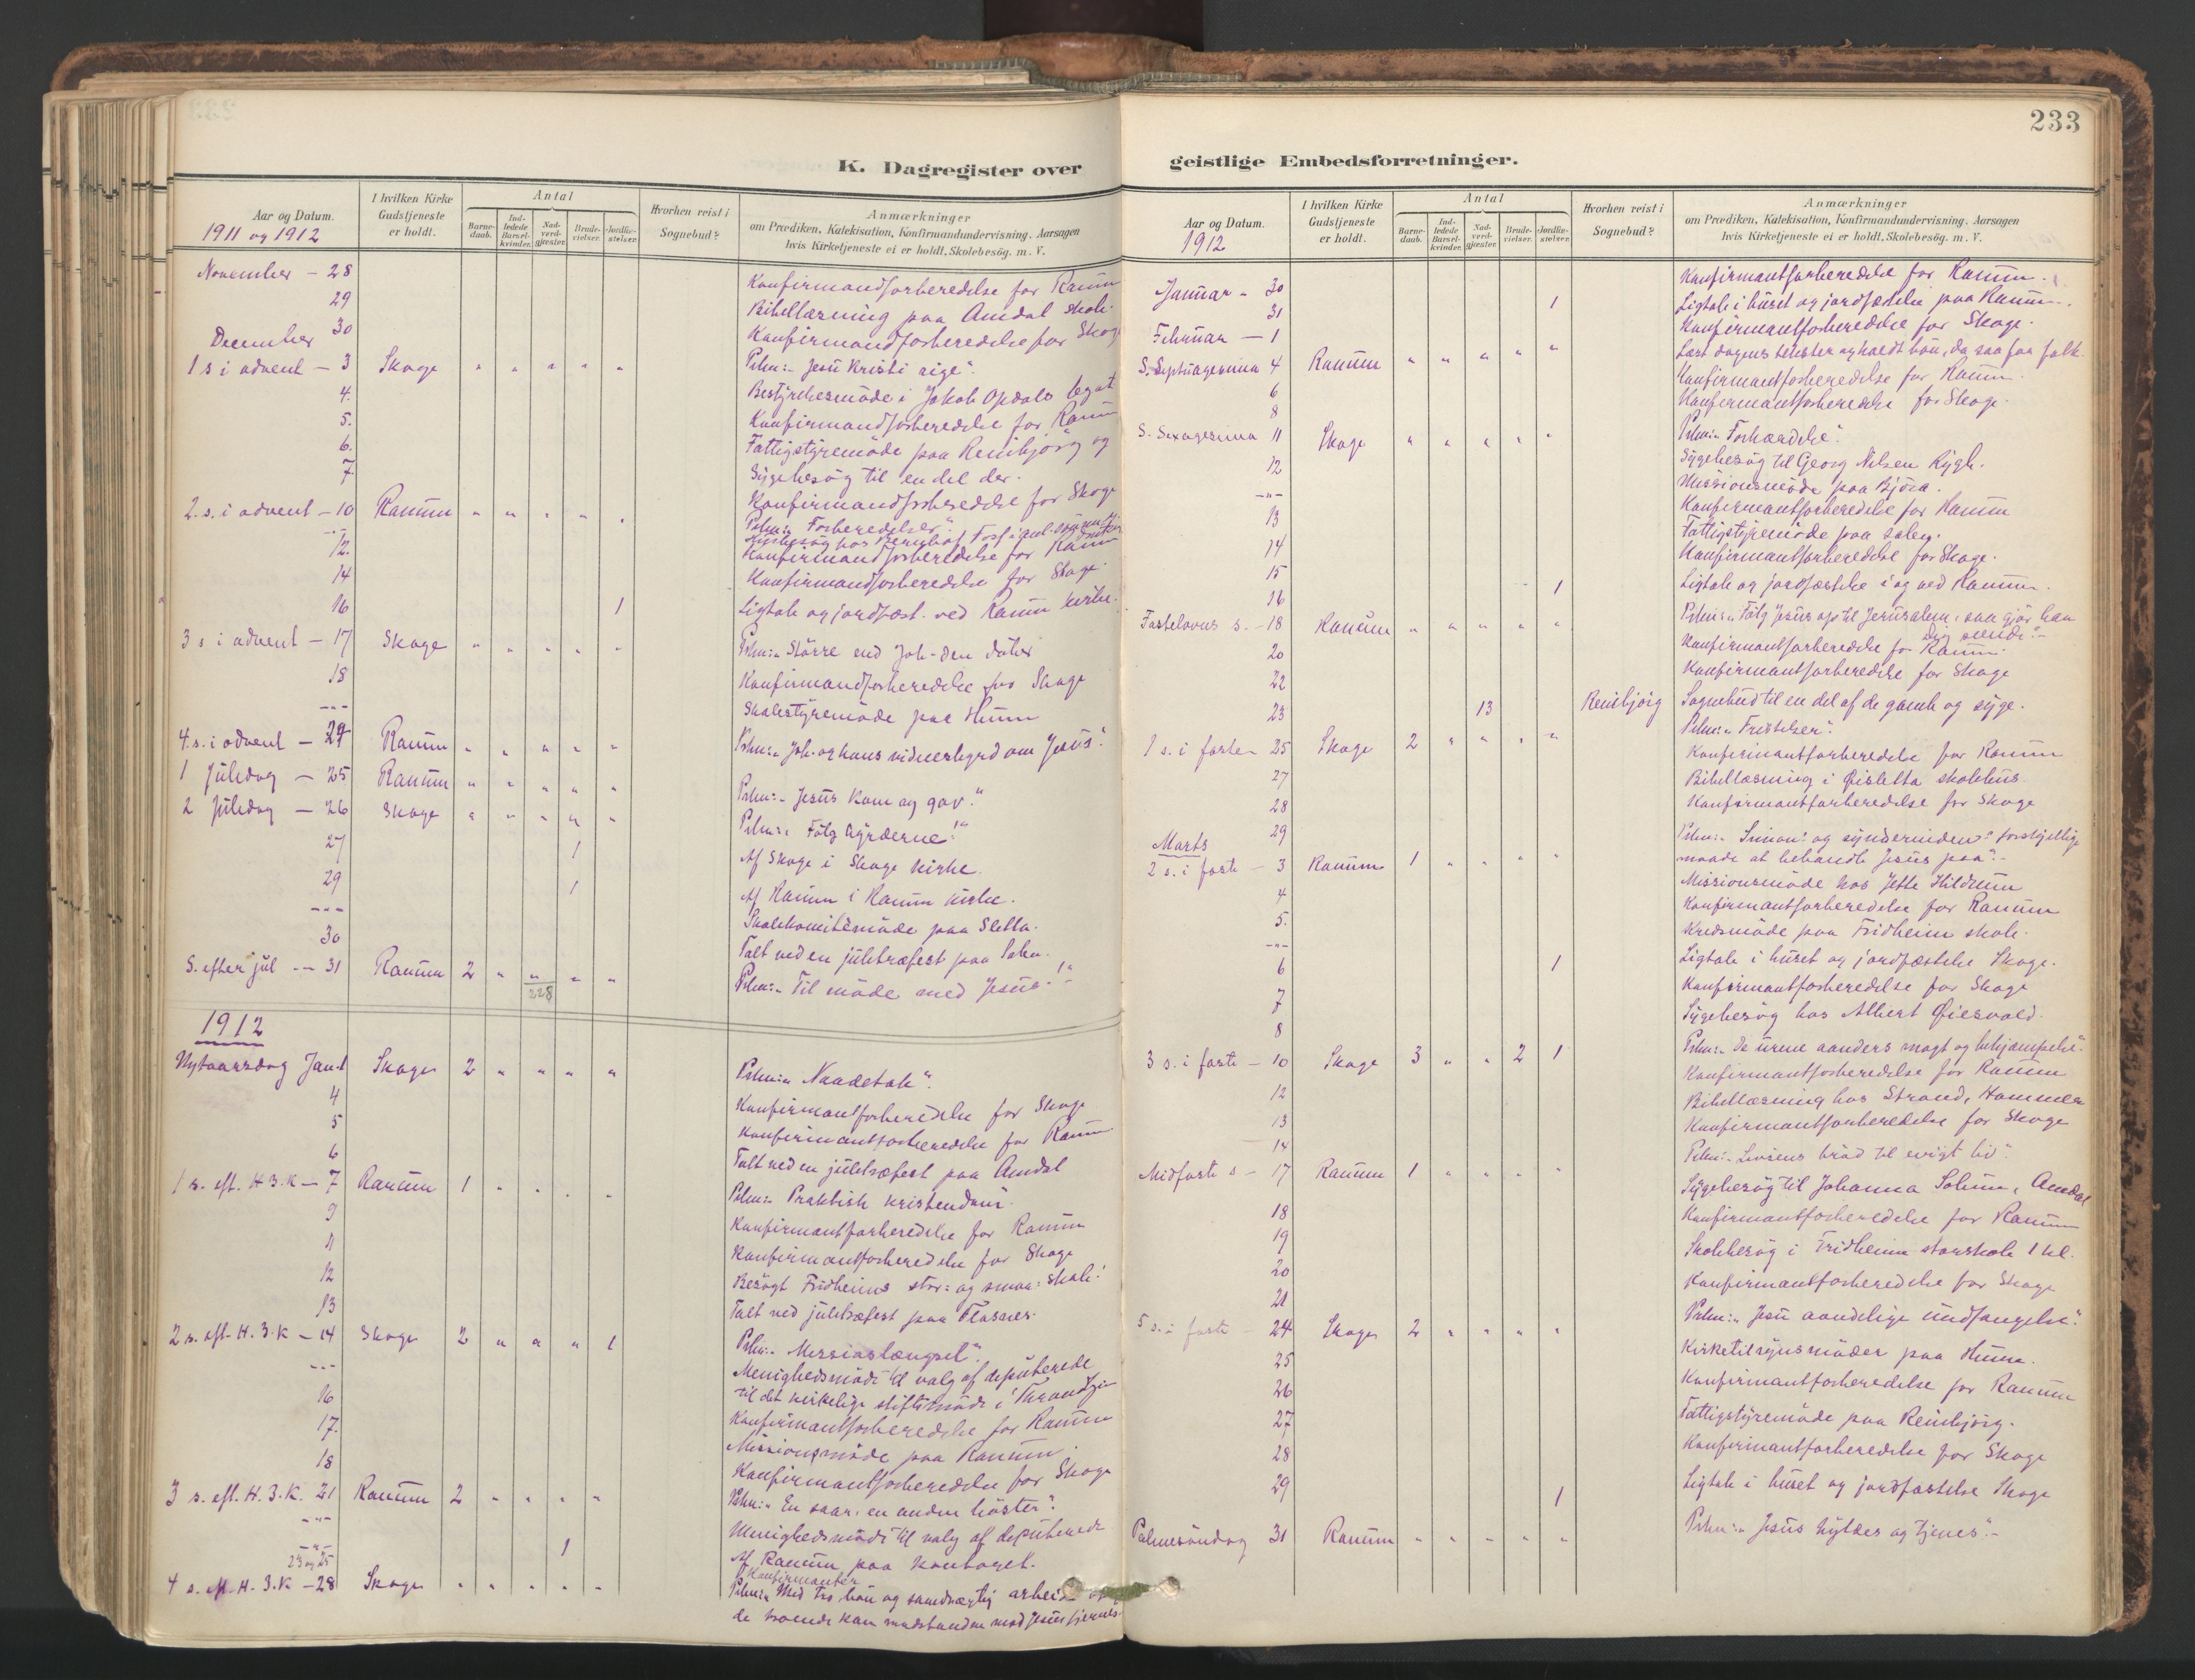 233
K. Dagregister over
geistlige Embedsforretninger.
Aar og Datum.
1911 og 1912
I hvilken Kirke Gudstjeneste er holdt.
Antal
Barne-daab.
Ind-ledede Barsel-kvinder.
Nad-verd-gjæster.
Brude-vielser.
Jordfæ-stelser.
Hvorhen reist i Sognebud?
Anmærkninger
om Prædiken, Katekisation, Konfirmandundervisning. Aarsagen
hvis Kirketjeneste ei er holdt, Skolebesög. m. V.
November - 28 Konfirmandforberedelse for Ranum
29 Bibellæsning paa Amdal skole.
30 Konfirmandforberedelse for Skage
December
1 s i advent - 3 Skage " " " " " Prken:- Jesu Kristi rige".
4. Bestyrelsesmöde i Jakob Opdals legat
5. Konfirmandforberedelse for Ranum
6. Fattigstyremöde paa Reinbjörg og
Sygebesög til en del der.
7. Konfirmandforberedelse for Skage
2. s. i advent - 10 Ranum " " " " " Forberedelser".
-"-
12. Konfirmandforberedelse for Ranum
14 Konfirmandforberedelse for Skage.
16 1 Ligtale og jordfæst. ved Ranum kirke.
3 s i advent - 17 Skage " " " " " Större end Joh- den döber
18 Konfirmandforberedelse for Skage
-"- Skolestyremöde paa Hunn
4. s. i advent - 24 Ranum " " " " " Joh. og hans vidnesbyrd om Jesus".
1 Juledag - 25 Ranum " " " " " Jesus kom og gav."
2 Juledag - 26 Skage " " " " " Fölg hyrderne!"
27 1 Af Skage i Skage kirke.
29 1 Af Ranum i Ranum kirke.
-"- Skolekomitemöde paa Sletta.
30 Talt ved en juletræfest paa Salen.
S. efter jul -- 31 Ranum 2 " " " " Til möde med Jesus!"-
228
1912
Nytaarsdag Jan 1 Skage 2 " " " " Naadetale".
4 Konfirmantforberedelse for Skage
5 Konfirmantforberedelse for Ranum
6 Talt ved en juletræfest paa Amdal
1 s. eft. H 3. K - 7 Ranum 1 " " " " Praktisk kristendom.
9 Konfirmantforberedelse for Ranum
11 Konfirmantforberedelse for Skage
12 Besögt Fridheims stor- og smaa-skole!
13 Talt ved juletræfest paa Flasnes.
2 s. eft. H. 3. K - 14 Skage 2 " " " 1 Messiaslængsel".
-"- Menighedsmöde til valg af deputerede
til det kirkelige stiftsmöde i Trondhjem
16 Konfirmantforberedelse for Ranum
17. Missionsmöde paa Ranum.
18 Konfirmantforberedelse for Skage
3 s. eft. H. 3. K. 21 Ranum 2 " " " " En saar, en anden höster".
-"- Menighedsmöde til valg af deputerede
-"- 1 Af Ranum paa kontoret.
23 og 25 Konfirmanter
4 s. eft. H. 3. K - 28 Skage " " " " " Med tro bön og samdrægtig arbeide
de troende kan
Aar og Datum.
1912
I hvilken Kirke Gudstjeneste er holdt.
Antal
Barne-daab.
Ind-ledede Barsel-kvinder.
Nad-verd-gjæster.
Brude-vielser.
Jordfæ-stelser.
Hvorhen reist i Sognebud?
Anmærkninger
om Prædiken, Katekisation, Konfirmandundervisning. Aarsagen
hvis Kirketjeneste ei er holdt, Skolebesög. m. V.
Januar - 30 Konfirmantforberedelse for Ranum.
31 1 Ligtale i huset og jordfæstelse paa Ranum.
Februar - 1 Konfirmantforberedelse for Skage.
S. Septuagesima 4 Ranum " " " " " Læst dagens tekster og holdt bön, da saa faa folk.
6 Konfirmantforberedelse for Ranum.
8 Konfirmantforberedelse for Skage.
S. Sexagesima 11 Skage " " " " " Forhærdelse".
12 Sygebesög til Georg Nilsen Rygh.
-"- Missionsmöde paa Björa.
13 Konfirmantforberedelse for Ranum
14 Fattigstyremöde paa Salen.
15 Konfirmantforberedelse for Skage.
16 1 Ligtale og jordfæstelse i og ved Ranum.
Fastelavns s. - 18 Ranum " " " " " Fölg Jesus op til Jerusalem, saa gjör han
dig seende".-
20 Konfirmantforberedelse for Ranum.
22 Konfirmantforberedelse for Skage
23 13 Reinbjörg Sognebud til en del af de gamle og syge.
1 s. i fasten 25 Skage 2 " " " " Fristelser".
27 Konfirmantforberedelse for Ranum
28 Bibellæsning i Öisletta skolehus.
29 Konfirmantforberedelse for Skage
Marts
2 s. i faste - 3 Ranum 1 " " " " Simons og synderindens forskjellige
maade at behandle Jesus paa".-
4 Missionsmöde hos Jette Hildrum
5. Konfirmantforberedelse for Ranum
-"- Kredsmöde paa Fridheim skole.
6 1 Ligtale i huset og jordfæstelse Skage.
7 Konfirmantforberedelse for Skage
8 Sygebesög hos Albert Öiesvold.
3 s. i faste - 10 Skage 3 " " 2 1 De urene aanders magt og bekjæmpelse".
12 Konfirmantforberedelse for Ranum
13 Bibellæsning hos Strand, Hammer
14 Konfirmantforberedelse for Skage
Midfaste s - 17 Ranum 1 " " " " Livsens bröd til evigt liv".
18 Sygebesög til Johanna Solum, Amdal
19 Konfirmantforberedelse for Ranum
20 Skolebesög i Fridheim storskole 1 kl.
21 Konfirmantforberedelse for Skage
5 s. i faste - 24 Skage 2 " " " " Jesu aandelige undfangelse".
25 Kirketilsynsmöder paa Hunn.
26 Konfirmantforberedelse for Ranum
27 Fattigstyremöde paa Reinbjörg.
28 Konfirmantforberedelse for Skage
29 1 Ligtale i huset og jordfæstelse Skage
Palmesöndag 31 Ranum " " " " " Jesus hyldes og tjenes".-